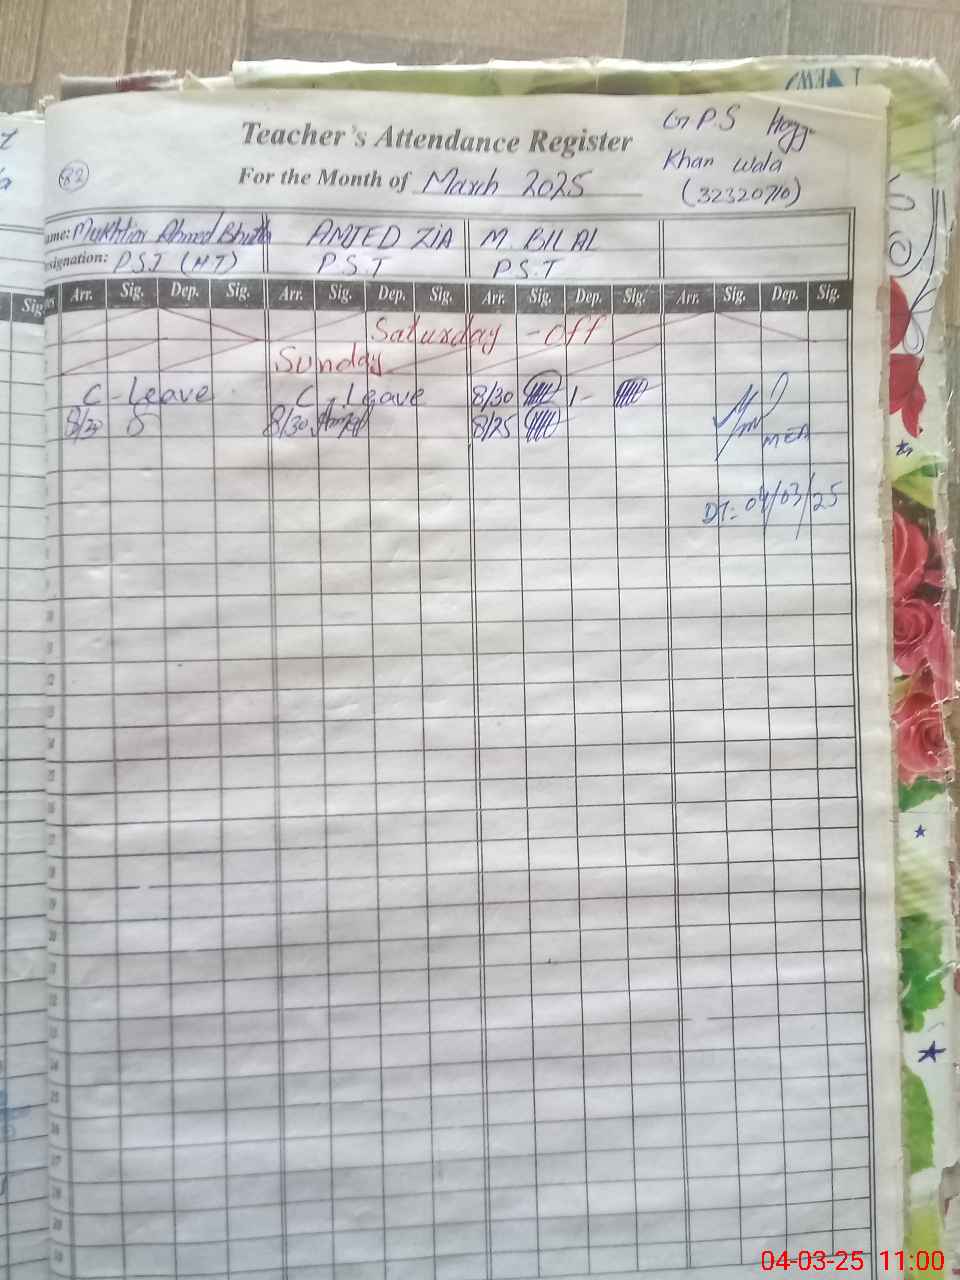 Teacher's Attendance Register
G P.S Haggi
Khan Wala
(32320710)
82
For the Month of March 2025
ame: Mukhtiar Ahmed Bhutta AMJED ZIA M. BILAL
signation: P.S.T (H.T) P.S.T P.S.T
Arr. Sig. Dep. Sig. Arr. Sig. Dep. Sig. Arr. Sig. Dep. Sig. Arr. Sig. Dep. Sig.
Saturday - off
Sunday
C - Leave C. Leave 8/30 1-
8/30 8/30 8/25
DT: 04/03/25
04-03-25 11:00